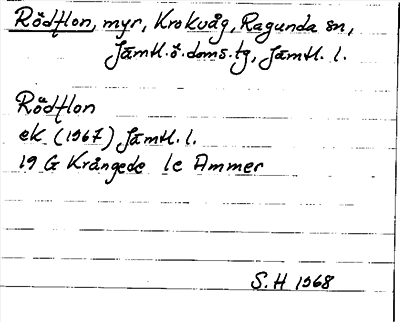 Rödflon, myr, Krokvåg, Ragunda sn,
Jämtl.ö.doms.tg, Jämtl. l.
Rödflon
ek (1967) Jämtl. l.
19 G Krångede 1c Ammer
S.H 1968